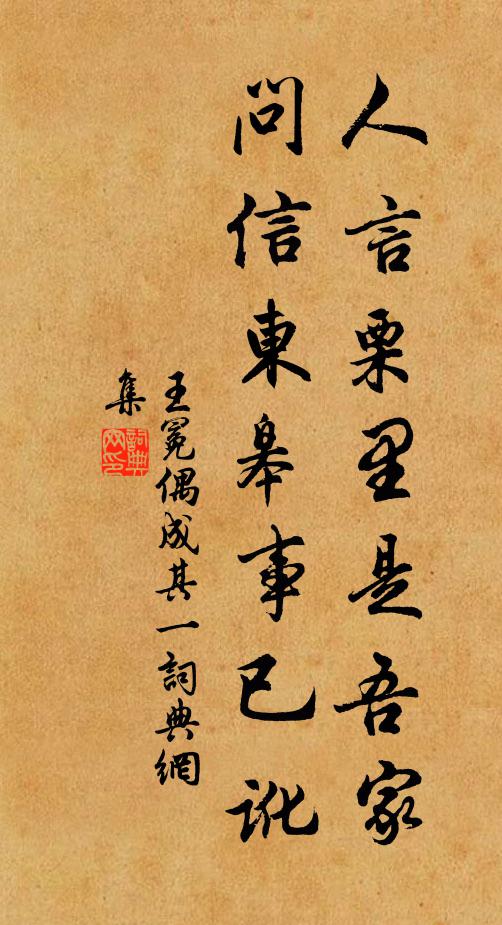 人言栗里是吾家
問信東皋事已訛
王冕偶成其一詞典網
集
詞典網印